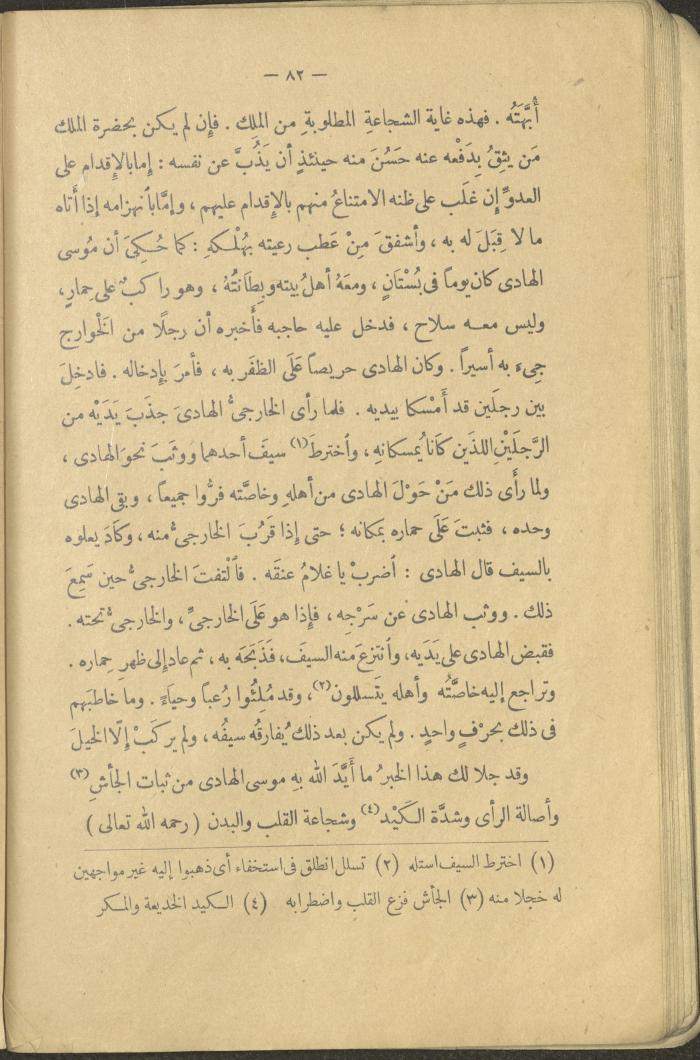 — ٨٢ —
أُبَّهَتُه . فهذه غاية الشجاعةِ المطلوبةِ من الملِك . فإِن لم يكن بحضرة الملك
مَن يثِقُ بِدَفْعه عنه حَسُنَ منه حينئذٍ أن يَذُبَّ عن نفسه : إِما بالإقدام على
العدوّ إِن غلَب على ظنه الامتناعُ منهم بالإِقدام عليهم ، وإِمَّا بانهزامه إذا أتاه
ما لا قِبَلَ له به ، وأشفقَ مِنْ عَطب رعيته بهُلْكهِ : كما حُكِىَ أن مُوسى
الهادى كان يوماً فى بُسْتَانٍ ، ومعَهُ أهلُ بيته وبِطَانتُهُ ، وهو راكبٌ على حِمارٍ ،
وليس معـه سلاح ، فدخل عليه حاجبه فأخبره أن رجلًا من الخْوارج
جِىءَ به أسيراً . وكان الهادى حريصاً عَلَى الظفَر به ، فأمرَ بإِدخاله . فادخِلَ
بين رجلَين قد أَمْسكا بيديه . فلما رأى الخارجىُّ الهادىَ جذَبَ يَدَيْه من
الرَّجلَيْنِ اللذَين كَانا يُمسكانهِ ، واخترطَ (١) سيفَ أحدهما ووثَبَ نحوَ الهادى ،
ولما رأَى ذلك مَنْ حَوْلَ الهادى من أهلهِ وخاصَّته فرُّوا جميعاً ، وبقى الهادى
وحده ، فثبتَ عَلَى حماره بمَكانه ؛ حتى إِذا قَرُبَ الخارجىُّ منه ، وكادَ يعلوه
بالسيف قال الهادى : اضربْ يا غلامُ عنقَه . فالْتفتَ الخارجىُّ حين سَمِعَ
ذلك . ووثب الهادى عن سَرْجِه ، فإِذا هو عَلَى الخارجىِّ ، والخارجىُّ تحته .
فقبض الهادى على يَدَيه ، وانتزعَ منه السيفَ ، فذَبَحَه به ، ثم عاد إلى ظهرِ حِماره .
وتراجع إليه خاصَّتُه وأهله يتسللون (٢) ، وقد مُلِئُوا رُعباً وحيَاءً . وما خاطبَهم
فى ذلك بحَرْفٍ واحدٍ . ولم يكن بعد ذلك يُفارقُه سيفُه ، ولم يركَبْ إِلّا الخيلَ
وقد جلا لك هذا الخبرُ ما أَيَّدَ الله بهِ موسى الهادى من ثبات الجأشِ (٣)
وأصالة الرأى وشدَّة الـكَيْد (٤) وشجاعة القلب والبدن ( رحمه الله تعالى )
(١) اخترط السيف استله (٢) تسلل انطلق فى استخفاء أى ذهبوا إليه غير مواجهين
له خجلا منه (٣) الجأش فزع القلب واضطرابه (٤) الـكيد الخديعة والمـكر